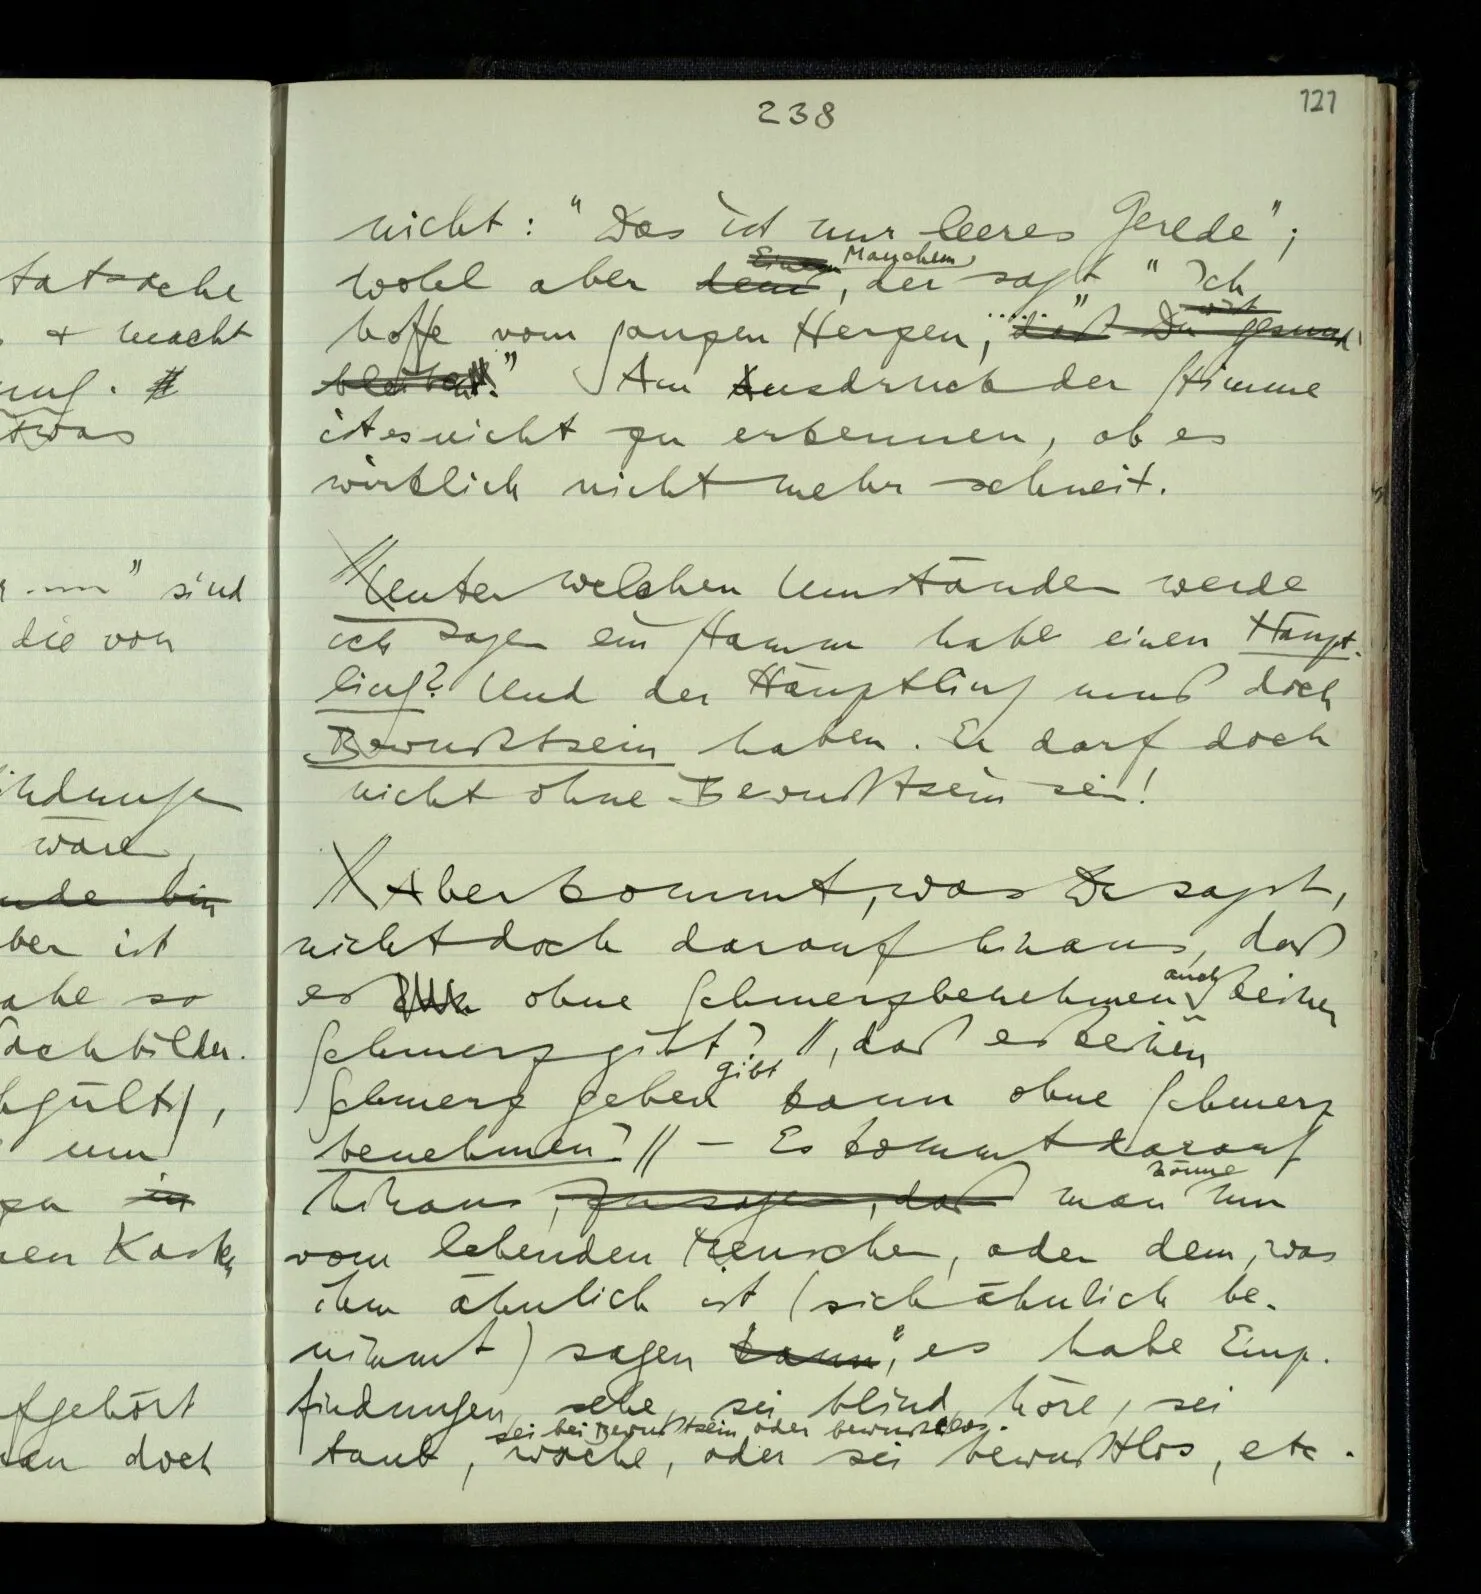 238
121
nicht: "Das ist nur leeres Gerede";
Einem Manchem
wohl aber dem, der sagt "Ich
wirst
hoffe vom ganzen Herzen, ......" daß Du gesund
bleibst." Am Ausdruck der Stimme
ist es nicht zu erkennen, ob es
wirklich nicht mehr schneit.
\\ Unter welchen Umständen werde
ich sagen ein Stamm habe einen Häupt-
ling? Und der Häuptling muß doch
Bewußtsein haben. Er darf doch
nicht ohne Bewußtsein sein!
\\ Aber kommt, was Du sagst,
nicht doch darauf hinaus, daß
auch
es ohne Schmerzbenehmen keinen
Schmerz gibt? //, daß es keinen
gibt
Schmerz geben kann ohne Schmerz
benehmen? // – Es kommt darauf
könne
hinaus, zu sagen, daß man nur
vom lebenden Menschen, oder dem, was
ihm ähnlich ist (sich ähnlich be-
nimmt) sagen kann, es habe Emp-
findungen, sehe, sei blind, höre, sei
sei bei Bewußtsein oder bewußtlos.
taub, wache, oder sei bewußtlos, etc.
tatsache
+ macht
etwas
" sind
die von
wäre,
nde bin
ber ist
abe so
Nachbilder.
gültig,
um
zu in
en Kasten
fgehört
doch